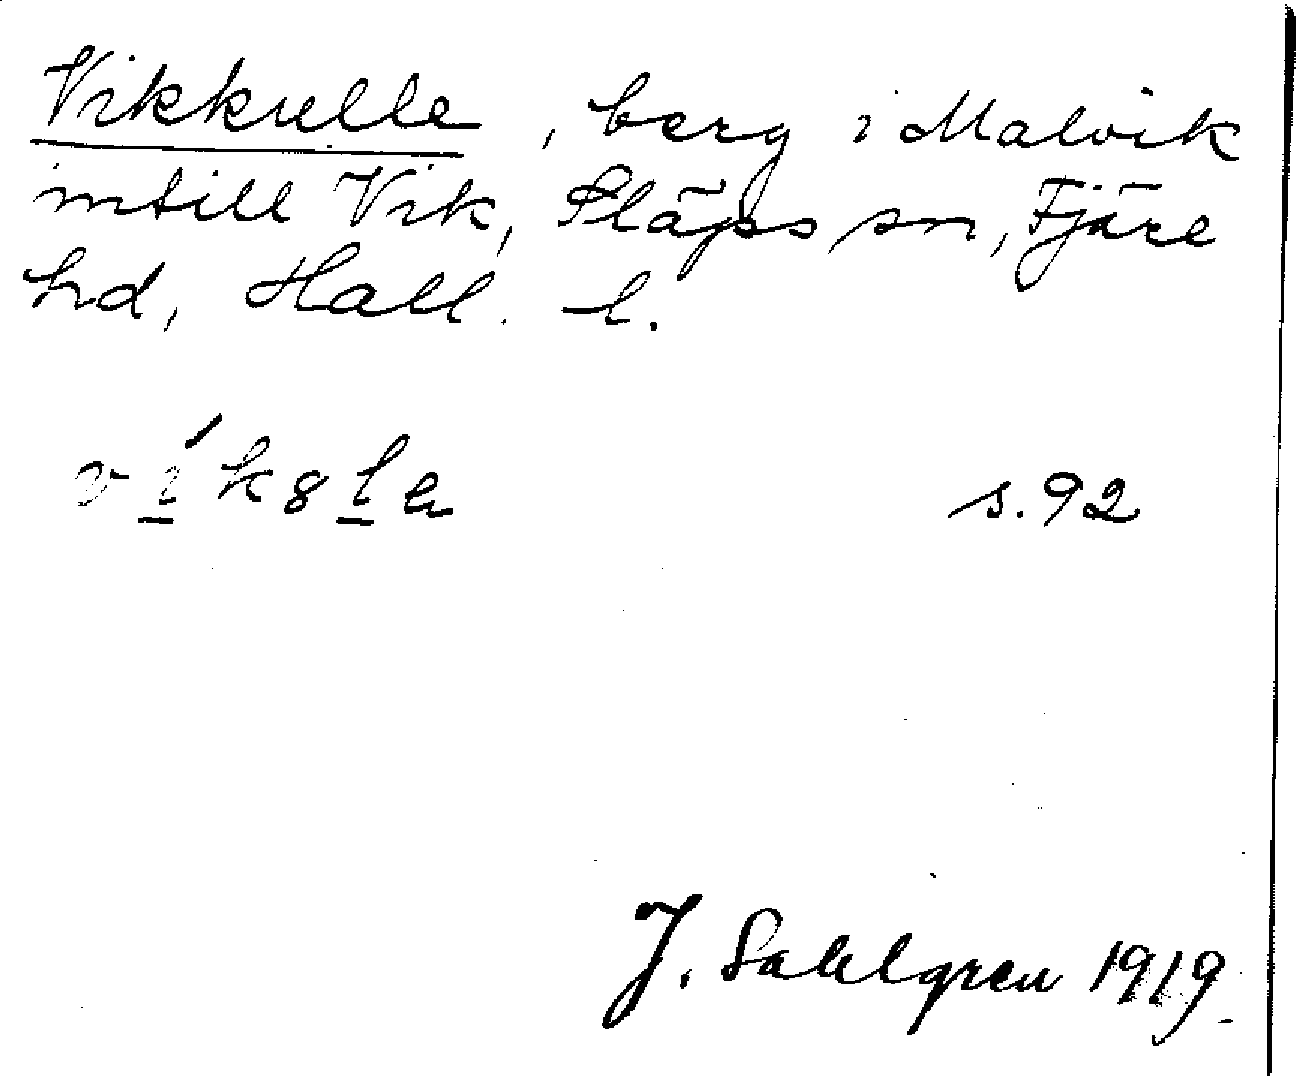 Vikkulle, berg i Malvik
intill Vik, Släps sn, Fjäre
hd, Hall. l.
ví̱k8ḻa s. 92
J. Sahlgren 1919.